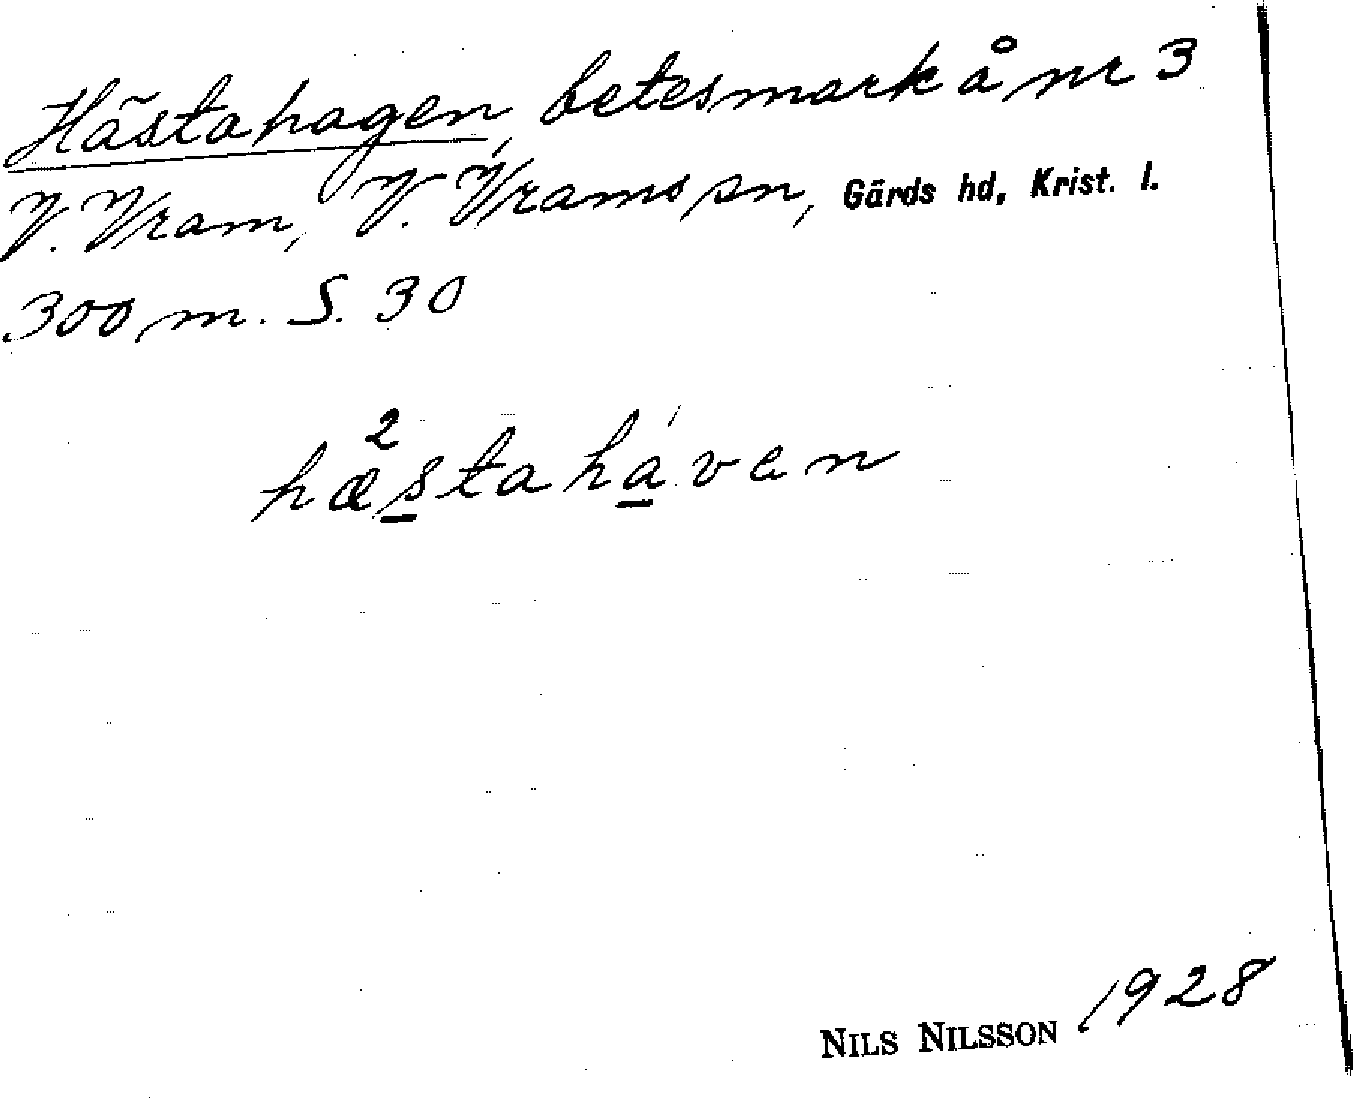 Hästahagen, betesmark å nr 3
V. Vram, V. Vrams sn, Gärds hd, Krist. l.
300 m. S. 30
hæ²s̲tahá̲ven
NILS NILSSON 1928